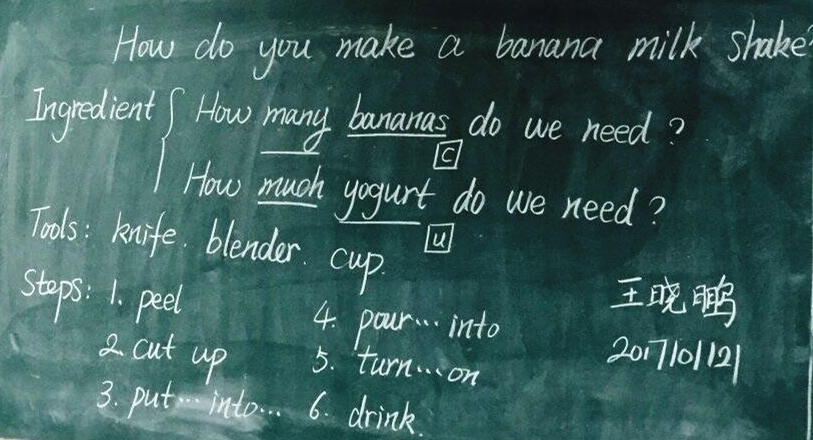 How do you make a banana milk shake?
Ingredient { How many bananas do we need?
C
How much yogurt do we need?
u
Tools: knife. blender. cup.
Steps: 1. peel
2. cut up
3. put... into...
4. pour... into
5. turn... on
6. drink.
王晓鹏
2017/10/12/